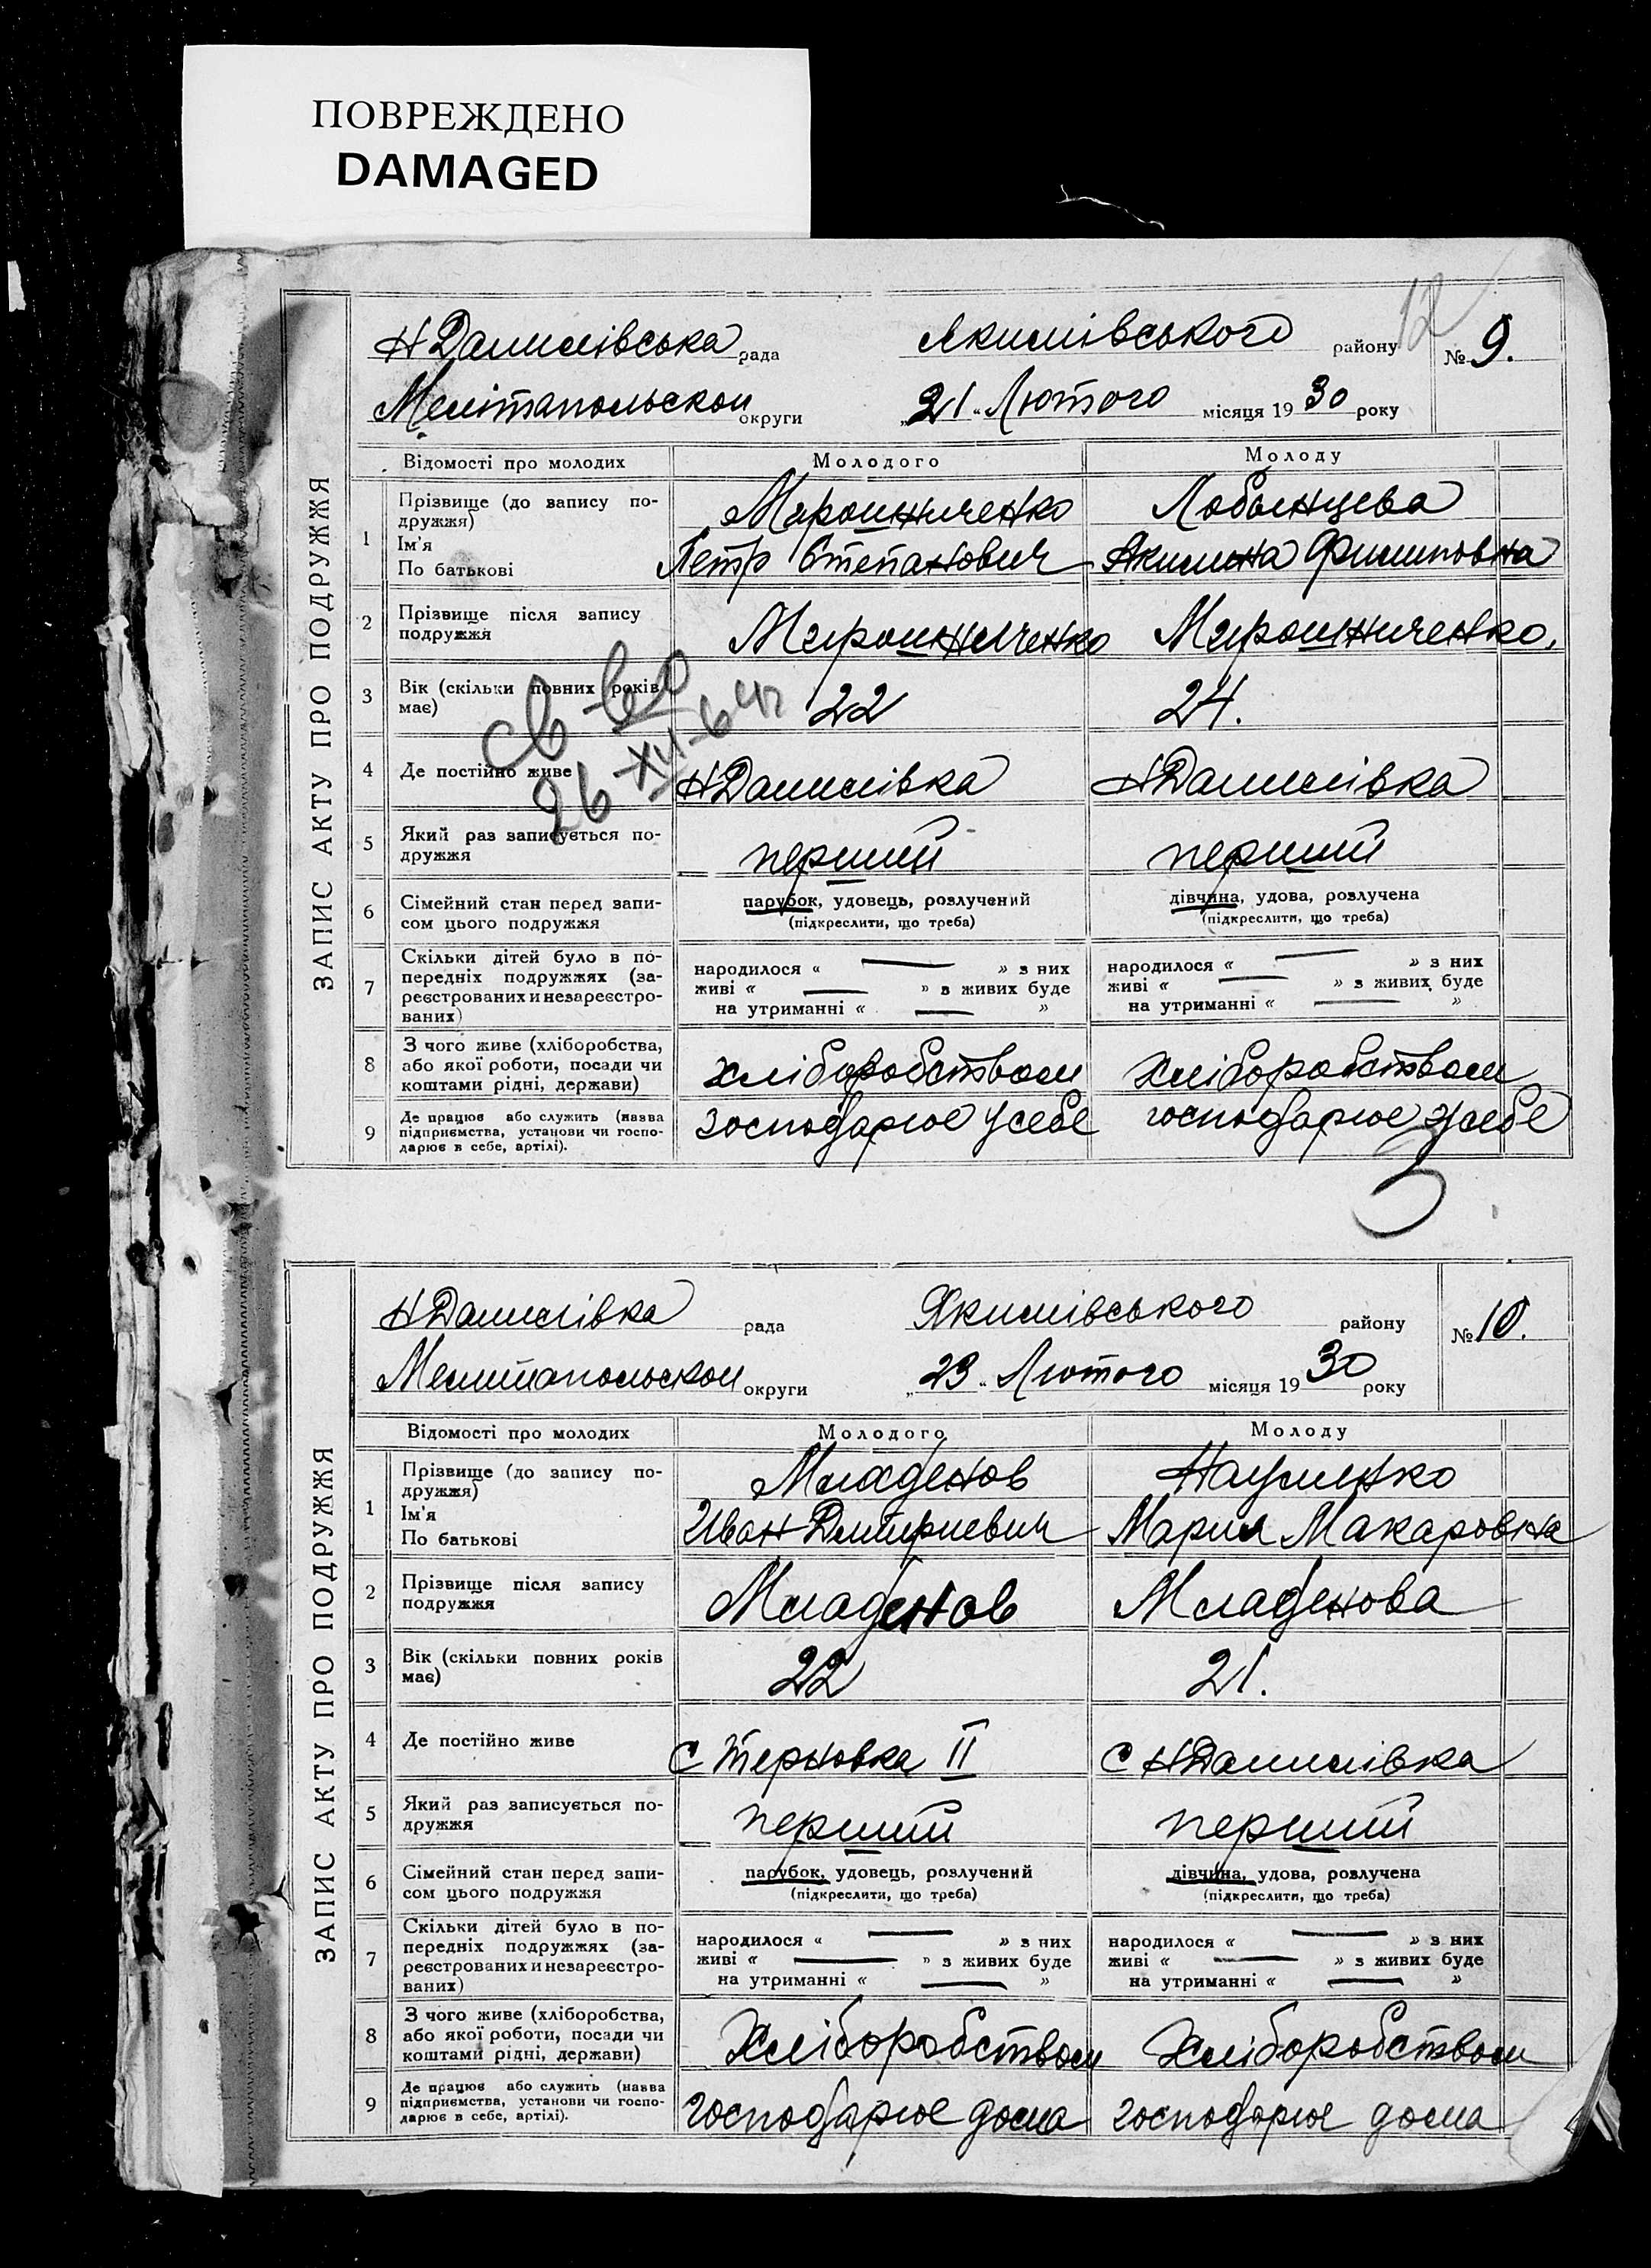 ПОВРЕЖДЕНО
DAMAGED
12
Н Данилівська рада Якимівського району № 9.
Мелітопольскои округи „21“ Лютого місяця 1930 року
ЗАПИС АКТУ ПРО ПОДРУЖЖЯ
Відомості про молодих Молодого Молоду
1 Прізвище (до запису подружжя) Мирошниченко Лобынцева
Ім'я
По батькові Петр Степанович Акилина Филиповна
2 Прізвище після запису подружжя Мирошниченко Мирошниченко.
3 Вік (скільки повних років має) 22 24.
св-во
26-XII-64г
4 Де постійно живе Н Данилівка Н Данилівка
5 Який раз записується подружжя перший перший
6 Сімейний стан перед записом цього подружжя парубок, удовець, розлучений дівчина, удова, розлучена
(підкреслити, що треба) (підкреслити, що треба)
7 Скільки дітей було в попередніх подружжях (зареєстрованих и незареєстрованих)
народилося « — » з них народилося « — » з них
живі « — » з живих буде живі « — » з живих буде
на утриманні « — » на утриманні « — »
8 З чого живе (хліборобства, або якої роботи, посади чи коштами рідні, держави) хліборобством хліборобством
9 Де працює або служить (назва підприємства, установи чи господарює в себе, артілі). господарює у себе господарює у себе
Н Данилівка рада Якимівського району № 10.
Мелитопольскои округи „23“ Лютого місяця 1930 року
ЗАПИС АКТУ ПРО ПОДРУЖЖЯ
Відомості про молодих Молодого Молоду
1 Прізвище (до запису подружжя) Младенов Науменко
Ім'я
По батькові Иван Дмитриевич Мария Макаровна
2 Прізвище після запису подружжя Младенов Младенова
3 Вік (скільки повних років має) 22 21.
4 Де постійно живе С Терновка II С Н Данилівка
5 Який раз записується подружжя перший перший
6 Сімейний стан перед записом цього подружжя парубок, удовець, розлучений дівчина, удова, розлучена
(підкреслити, що треба) (підкреслити, що треба)
7 Скільки дітей було в попередніх подружжях (зареєстрованих и незареєстрованих)
народилося « — » з них народилося « — » з них
живі « — » з живих буде живі « — » з живих буде
на утриманні « — » на утриманні « — »
8 З чого живе (хліборобства, або якої роботи, посади чи коштами рідні, держави) Хліборобством Хліборобством
9 Де працює або служить (назва підприємства, установи чи господарює в себе, артілі). господарює дома господарює дома